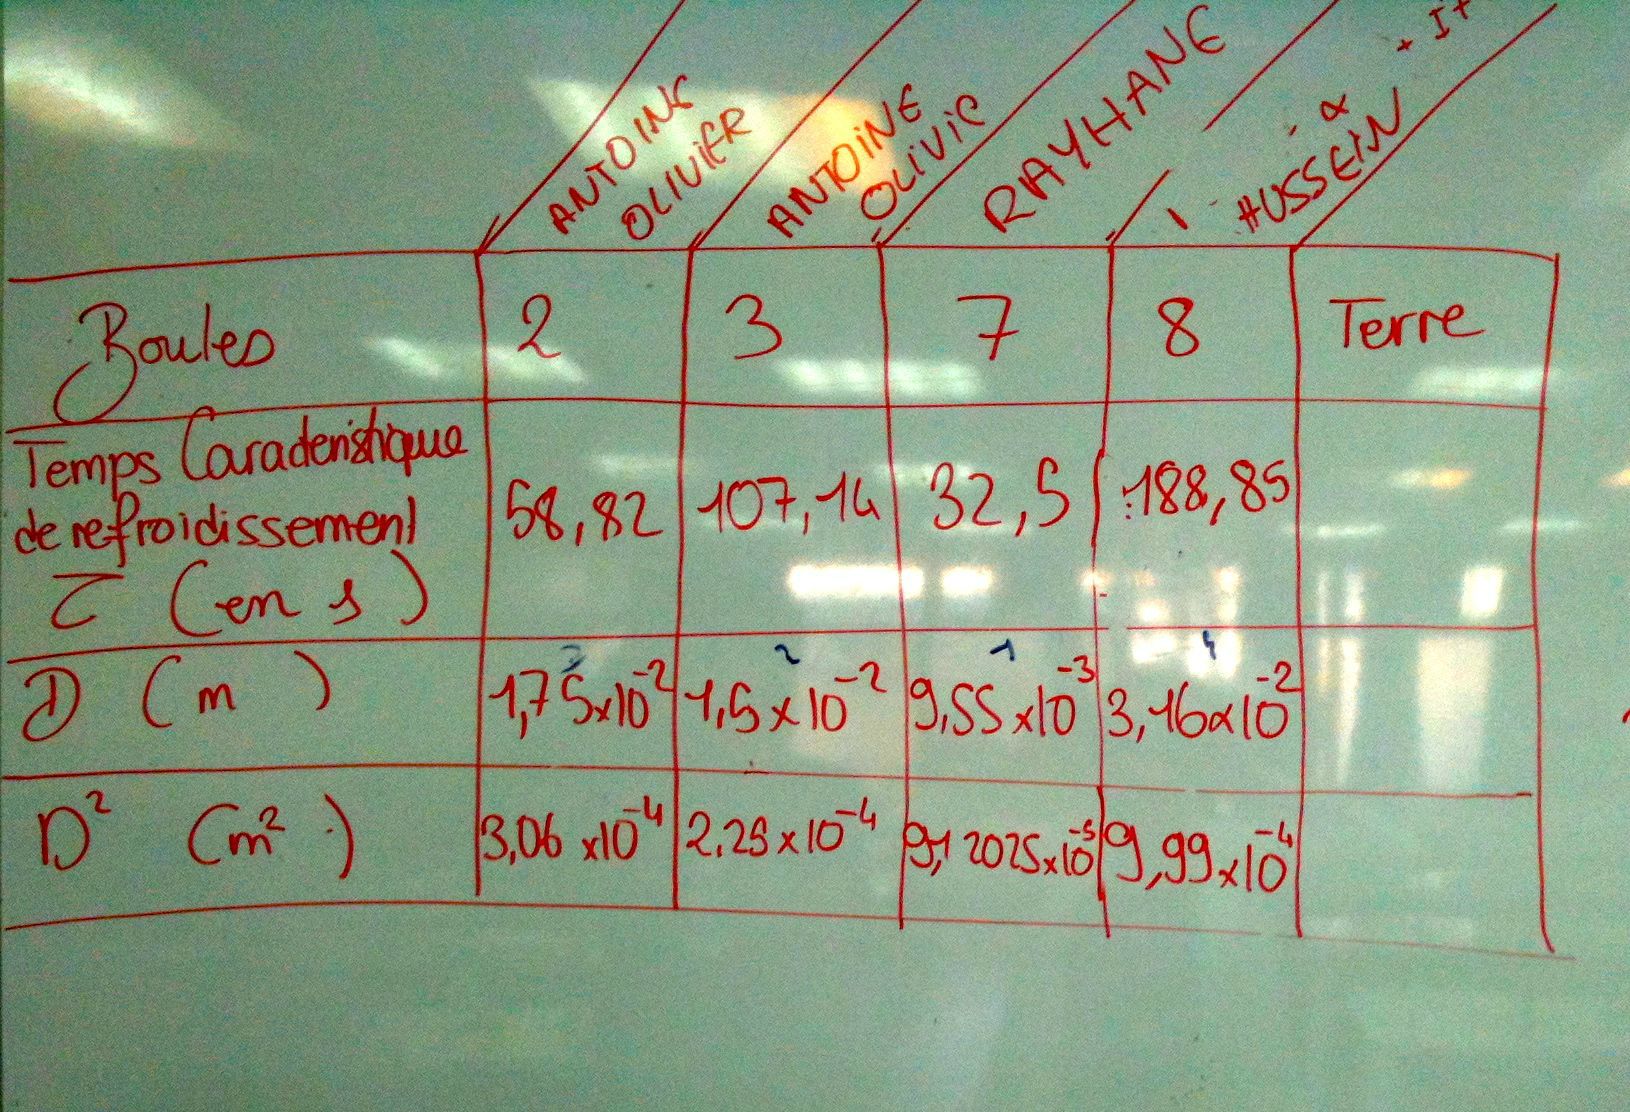 ANTOINE
OLIVIER
ANTOINE
OLIVIE
RAYHANE
HUSSEIN
Boules 2 3 7 8 Terre
Temps Caracteristique
de refroidissement 58,82 107,14 32,5 188,85
τ (en s)
3 2 1 4
D (m) 1,75x10⁻² 1,5x10⁻² 9,55x10⁻³ 3,16x10⁻²
D² (m²) 3,06x10⁻⁴ 2,25x10⁻⁴ 9,12025x10⁻⁵ 9,99x10⁻⁴